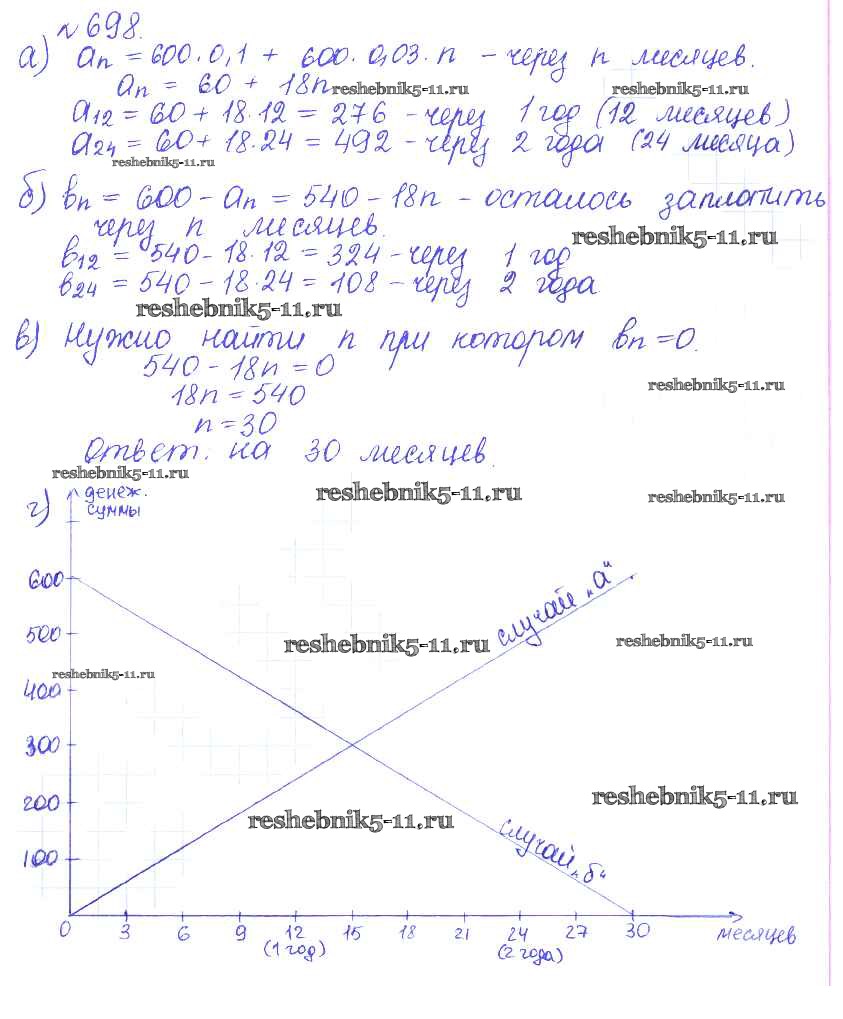 №698.
а) aₙ = 600·0,1 + 600·0,03·n – через n месяцев.
aₙ = 60 + 18n
reshebnik5-11.ru reshebnik5-11.ru
a₁₂ = 60 + 18·12 = 276 – через 1 год (12 месяцев)
a₂₄ = 60 + 18·24 = 492 – через 2 года (24 месяца)
reshebnik5-11.ru
б) bₙ = 600 – aₙ = 540 – 18n – осталось заплотить
через n месяцев.
reshebnik5-11.ru
b₁₂ = 540 – 18·12 = 324 – через 1 год
b₂₄ = 540 – 18·24 = 108 – через 2 года
reshebnik5-11.ru
в) Нужно найти n при котором bₙ = 0.
540 – 18n = 0
reshebnik5-11.ru
18n = 540
n = 30
Ответ: на 30 месяцев.
reshebnik5-11.ru
г) денеж.
суммы
reshebnik5-11.ru reshebnik5-11.ru
600
случай „а“
500
reshebnik5-11.ru reshebnik5-11.ru
reshebnik5-11.ru
400
300
200
reshebnik5-11.ru
reshebnik5-11.ru
случай „б“
100
0 3 6 9 12 15 18 21 24 27 30 месяцев
(1 год) (2 года)